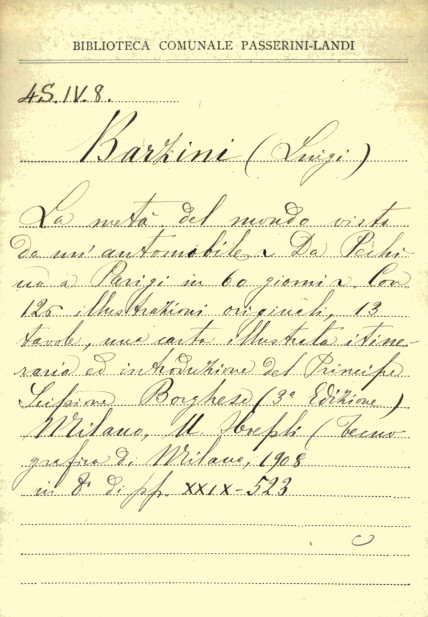 BIBLIOTECA COMUNALE PASSERINI-LANDI
4S.IV.8.
Barzini (Luigi)
La metà del mondo vista
da un'automobile. Da Pechi-
no a Parigi in 60 giorni. Con
126 illustrazioni originali, 13
tavole, una carta illustrata itine-
raria ed introduzione del Principe
Scipione Borghese (3ª Edizione)
Milano, U. Hoepli (Tecno
grafica di Milano, 1908
in 8° di pp. XXIX-523